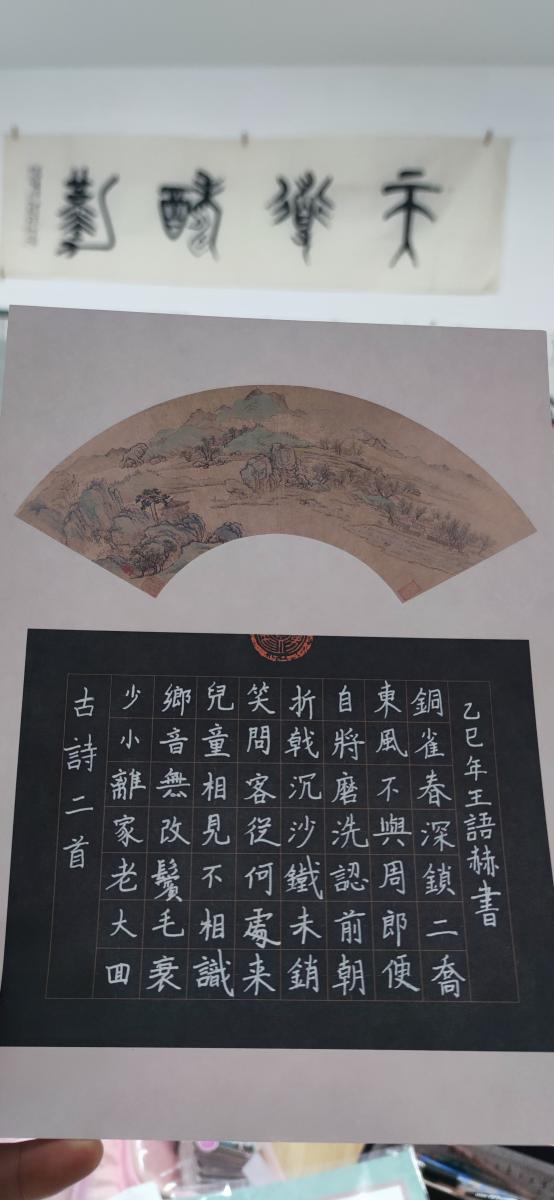 天道酬勤
古詩二首
少小離家老大囬
鄉音無改鬢毛衰
兒童相見不相識
笑問客從何處来
折戟沉沙鐵未銷
自將磨洗認前朝
東風不與周郎便
銅雀春深鎖二喬
乙巳年王語赫書